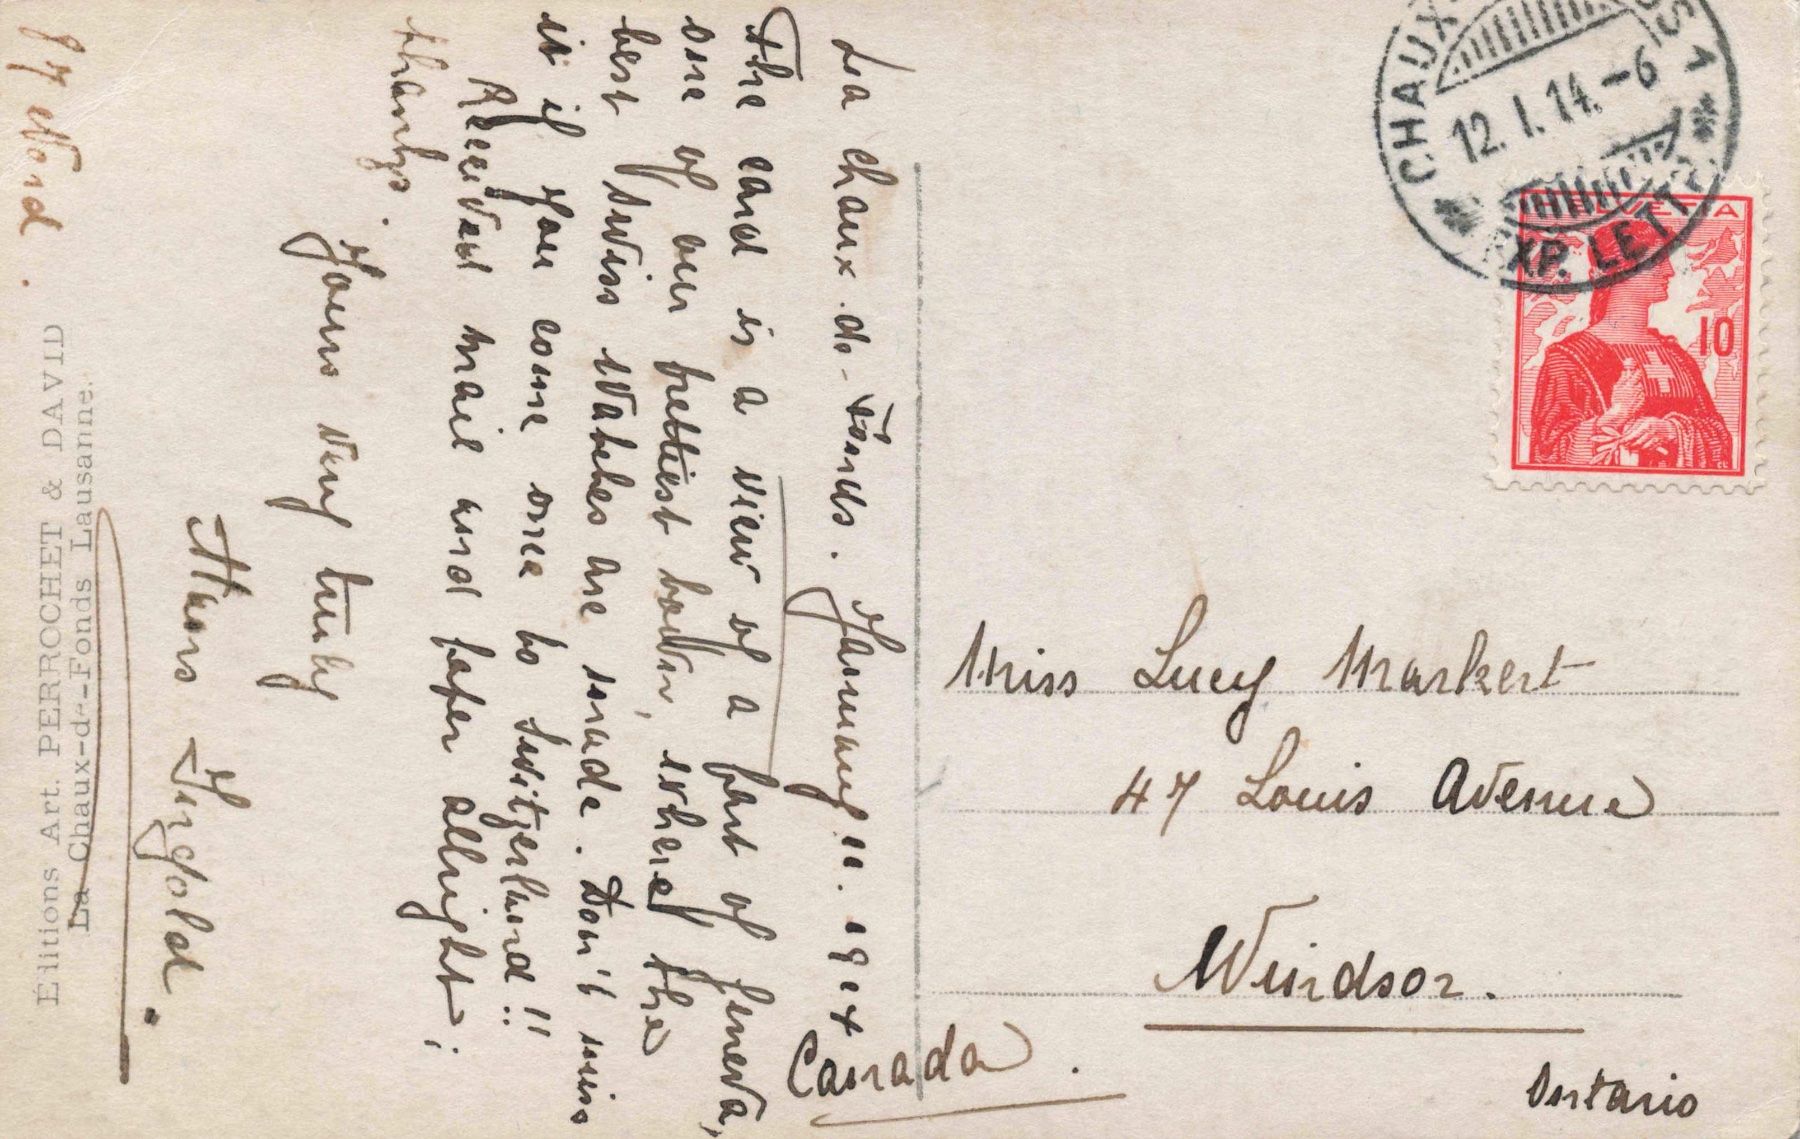 La Chaux-de-Fonds. January 11. 1914
The card is a view of a part of Geneva,
one of our prettiest town, where the
best swiss watches are made. Don't miss
it if you come once to Switzerland!!
Received mail and paper allright;
thanks.
Yours very truly
Hans Ingold.
87 Nord.
Éditions Art. PERROCHET & DAVID
La Chaux-de-Fonds Lausanne.
CHAUX-
DS 1
12. I. 14. -6
EXP. LETTR.
HELVETIA
10
Miss Lucy Markert
47 Louis Avenue
Windsor.
Ontario
Canada.